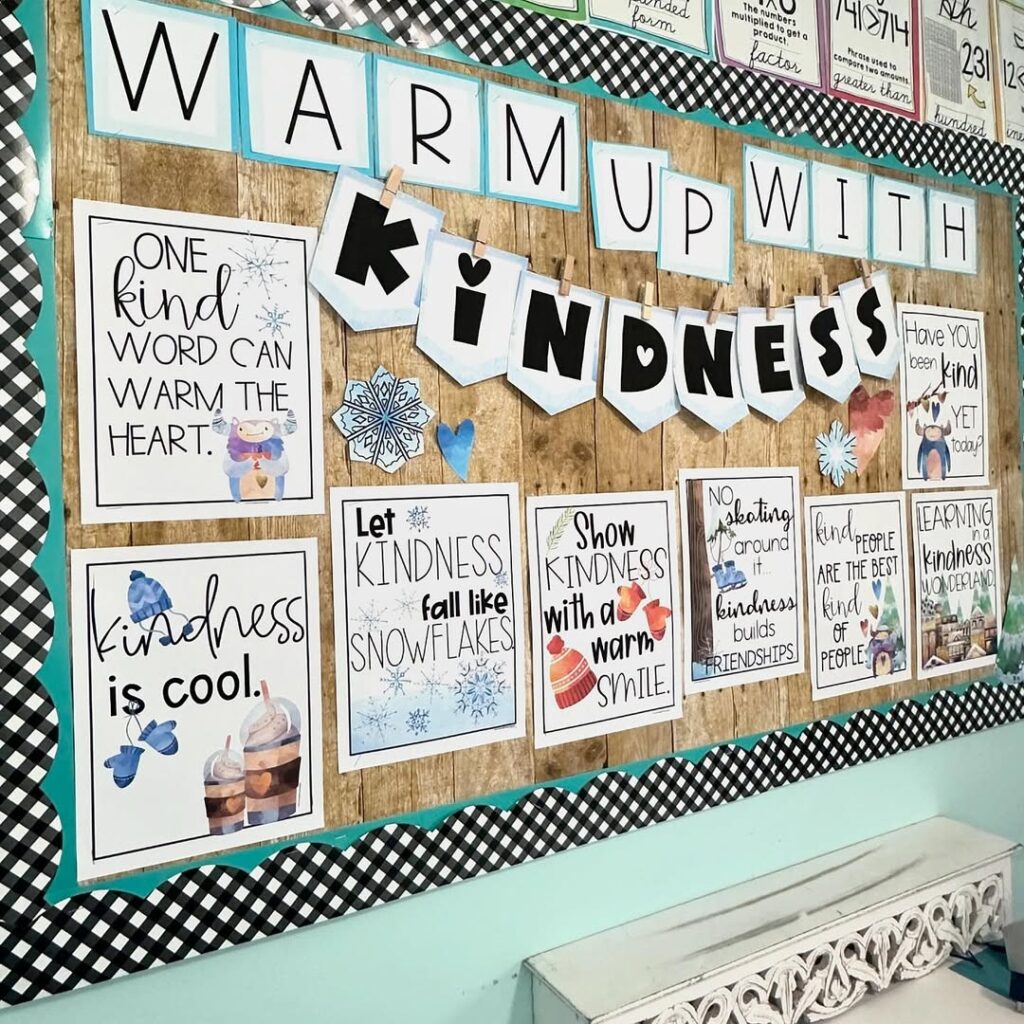 form
The numbers
multiplied to get a
product.
factor
741>714
Phrase used to
compare two amounts.
greater than
231
hundred
WARM UP WITH
KiNDNESS
ONE
kind
WORD CAN
WARM THE
HEART.
Have YOU
been kind
YET
today?
kindness
is cool.
Let
KINDNESS
fall like
SNOWFLAKES.
Show
KINDNESS
with a
warm
SMILE.
NO
skating
around
it...
kindness
builds
FRIENDSHIPS.
kind PEOPLE
ARE THE BEST
kind
OF
PEOPLE.
LEARNING
in a
kindness
WONDERLAND.